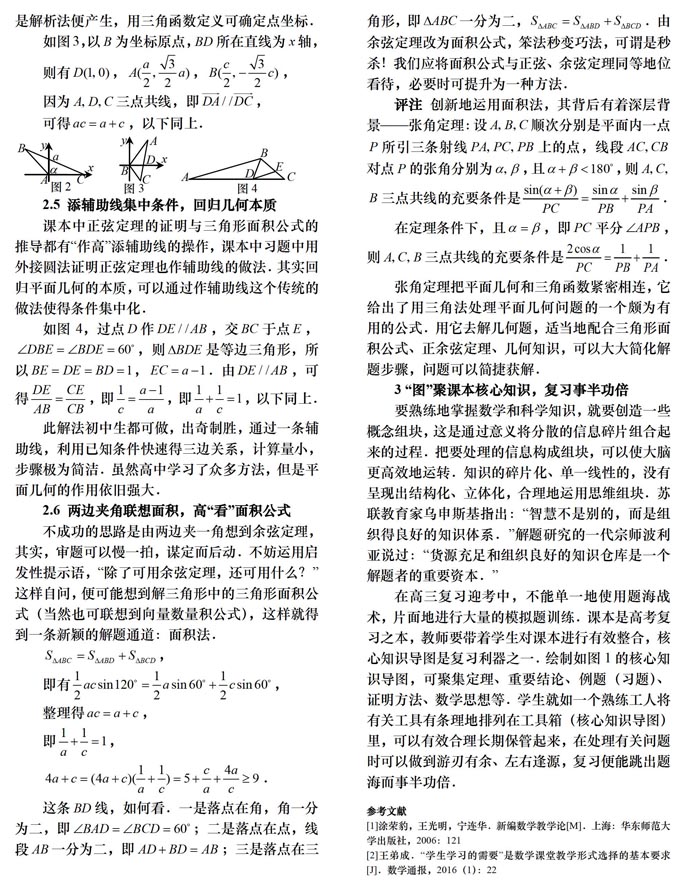 是解析法便产生，用三角函数定义可确定点坐标．
如图3，以 B 为坐标原点，BD 所在直线为 x 轴，
则有 D(1, 0)，A(a/2, √3/2 a)，B(c/2, −√3/2 c)，
因为 A, D, C 三点共线，即 DA→ // DC→，
可得 ac = a + c，以下同上．
B y a α A C x
图 2
y A B D x C
图 3
A B D E C
图 4
2.5 添辅助线集中条件，回归几何本质
课本中正弦定理的证明与三角形面积公式的
推导都有“作高”添辅助线的操作，课本中习题中用
外接圆法证明正弦定理也作辅助线的做法．其实回
归平面几何的本质，可以通过作辅助线这个传统的
做法使得条件集中化．
如图 4，过点 D 作 DE / / AB，交 BC 于点 E，
∠DBE = ∠BDE = 60°，则 ΔBDE 是等边三角形，所
以 BE = DE = BD = 1，EC = a − 1．由 DE / / AB，可
得 DE/AB = CE/CB，即 1/c = (a−1)/a，即 1/a + 1/c = 1，以下同上．
此解法初中生都可做，出奇制胜，通过一条辅
助线，利用已知条件快速得三边关系，计算量小，
步骤极为简洁．虽然高中学习了众多方法，但是平
面几何的作用依旧强大．
2.6 两边夹角联想面积，高“看”面积公式
不成功的思路是由两边夹一角想到余弦定理，
其实，审题可以慢一拍，谋定而后动．不妨运用启
发性提示语，“除了可用余弦定理，还可用什么？”
这样自问，便可能想到解三角形中的三角形面积公
式（当然也可联想到向量数量积公式），这样就得
到一条新颖的解题通道：面积法．
S_ΔABC = S_ΔABD + S_ΔBCD，
即有 1/2 ac sin 120° = 1/2 a sin 60° + 1/2 c sin 60°，
整理得 ac = a + c，
即 1/a + 1/c = 1，
4a + c = (4a + c)(1/a + 1/c) = 5 + c/a + 4a/c ≥ 9．
这条 BD 线，如何看．一是落点在角，角一分
为二，即 ∠BAD = ∠BCD = 60°；二是落点在点，线
段 AB 一分为二，即 AD + BD = AB；三是落点在三
角形，即 ΔABC 一分为二，S_ΔABC = S_ΔABD + S_ΔBCD．由
余弦定理改为面积公式，笨法秒变巧法，可谓是秒
杀！我们应将面积公式与正弦、余弦定理同等地位
看待，必要时可提升为一种方法．
评注 创新地运用面积法，其背后有着深层背
景——张角定理：设 A, B, C 顺次分别是平面内一点
P 所引三条射线 PA, PC, PB 上的点，线段 AC, CB
对点 P 的张角分别为 α, β，且 α + β < 180°，则 A, C,
B 三点共线的充要条件是 sin(α + β)/PC = sin α/PB + sin β/PA．
在定理条件下，且 α = β，即 PC 平分 ∠APB，
则 A, C, B 三点共线的充要条件是 2cos α/PC = 1/PB + 1/PA．
张角定理把平面几何和三角函数紧密相连，它
给出了用三角法处理平面几何问题的一个颇为有
用的公式．用它去解几何题，适当地配合三角形面
积公式、正余弦定理、几何知识，可以大大简化解
题步骤，问题可以简捷获解．
3 “图”聚课本核心知识，复习事半功倍
要熟练地掌握数学和科学知识，就要创造一些
概念组块，这是通过意义将分散的信息碎片组合起
来的过程．把要处理的信息构成组块，可以使大脑
更高效地运转．知识的碎片化、单一线性的，没有
呈现出结构化、立体化，合理地运用思维组块．苏
联教育家乌申斯基指出：“智慧不是别的，而是组
织得良好的知识体系．”解题研究的一代宗师波利
亚说过：“货源充足和组织良好的知识仓库是一个
解题者的重要资本．”
在高三复习迎考中，不能单一地使用题海战
术，片面地进行大量的模拟题训练．课本是高考复
习之本，教师要带着学生对课本进行有效整合，核
心知识导图是复习利器之一．绘制如图 1 的核心知
识导图，可聚集定理、重要结论、例题（习题）、
证明方法、数学思想等．学生就如一个熟练工人将
有关工具有条理地排列在工具箱（核心知识导图）
里，可以有效合理长期保管起来，在处理有关问题
时可以做到游刃有余、左右逢源，复习便能跳出题
海而事半功倍．
参考文献
[1]涂荣豹，王光明，宁连华．新编数学教学论[M]．上海：华东师范大
学出版社，2006：121
[2]王弟成．“学生学习的需要”是数学课堂教学形式选择的基本要求
[J]．数学通报，2016（1）：22